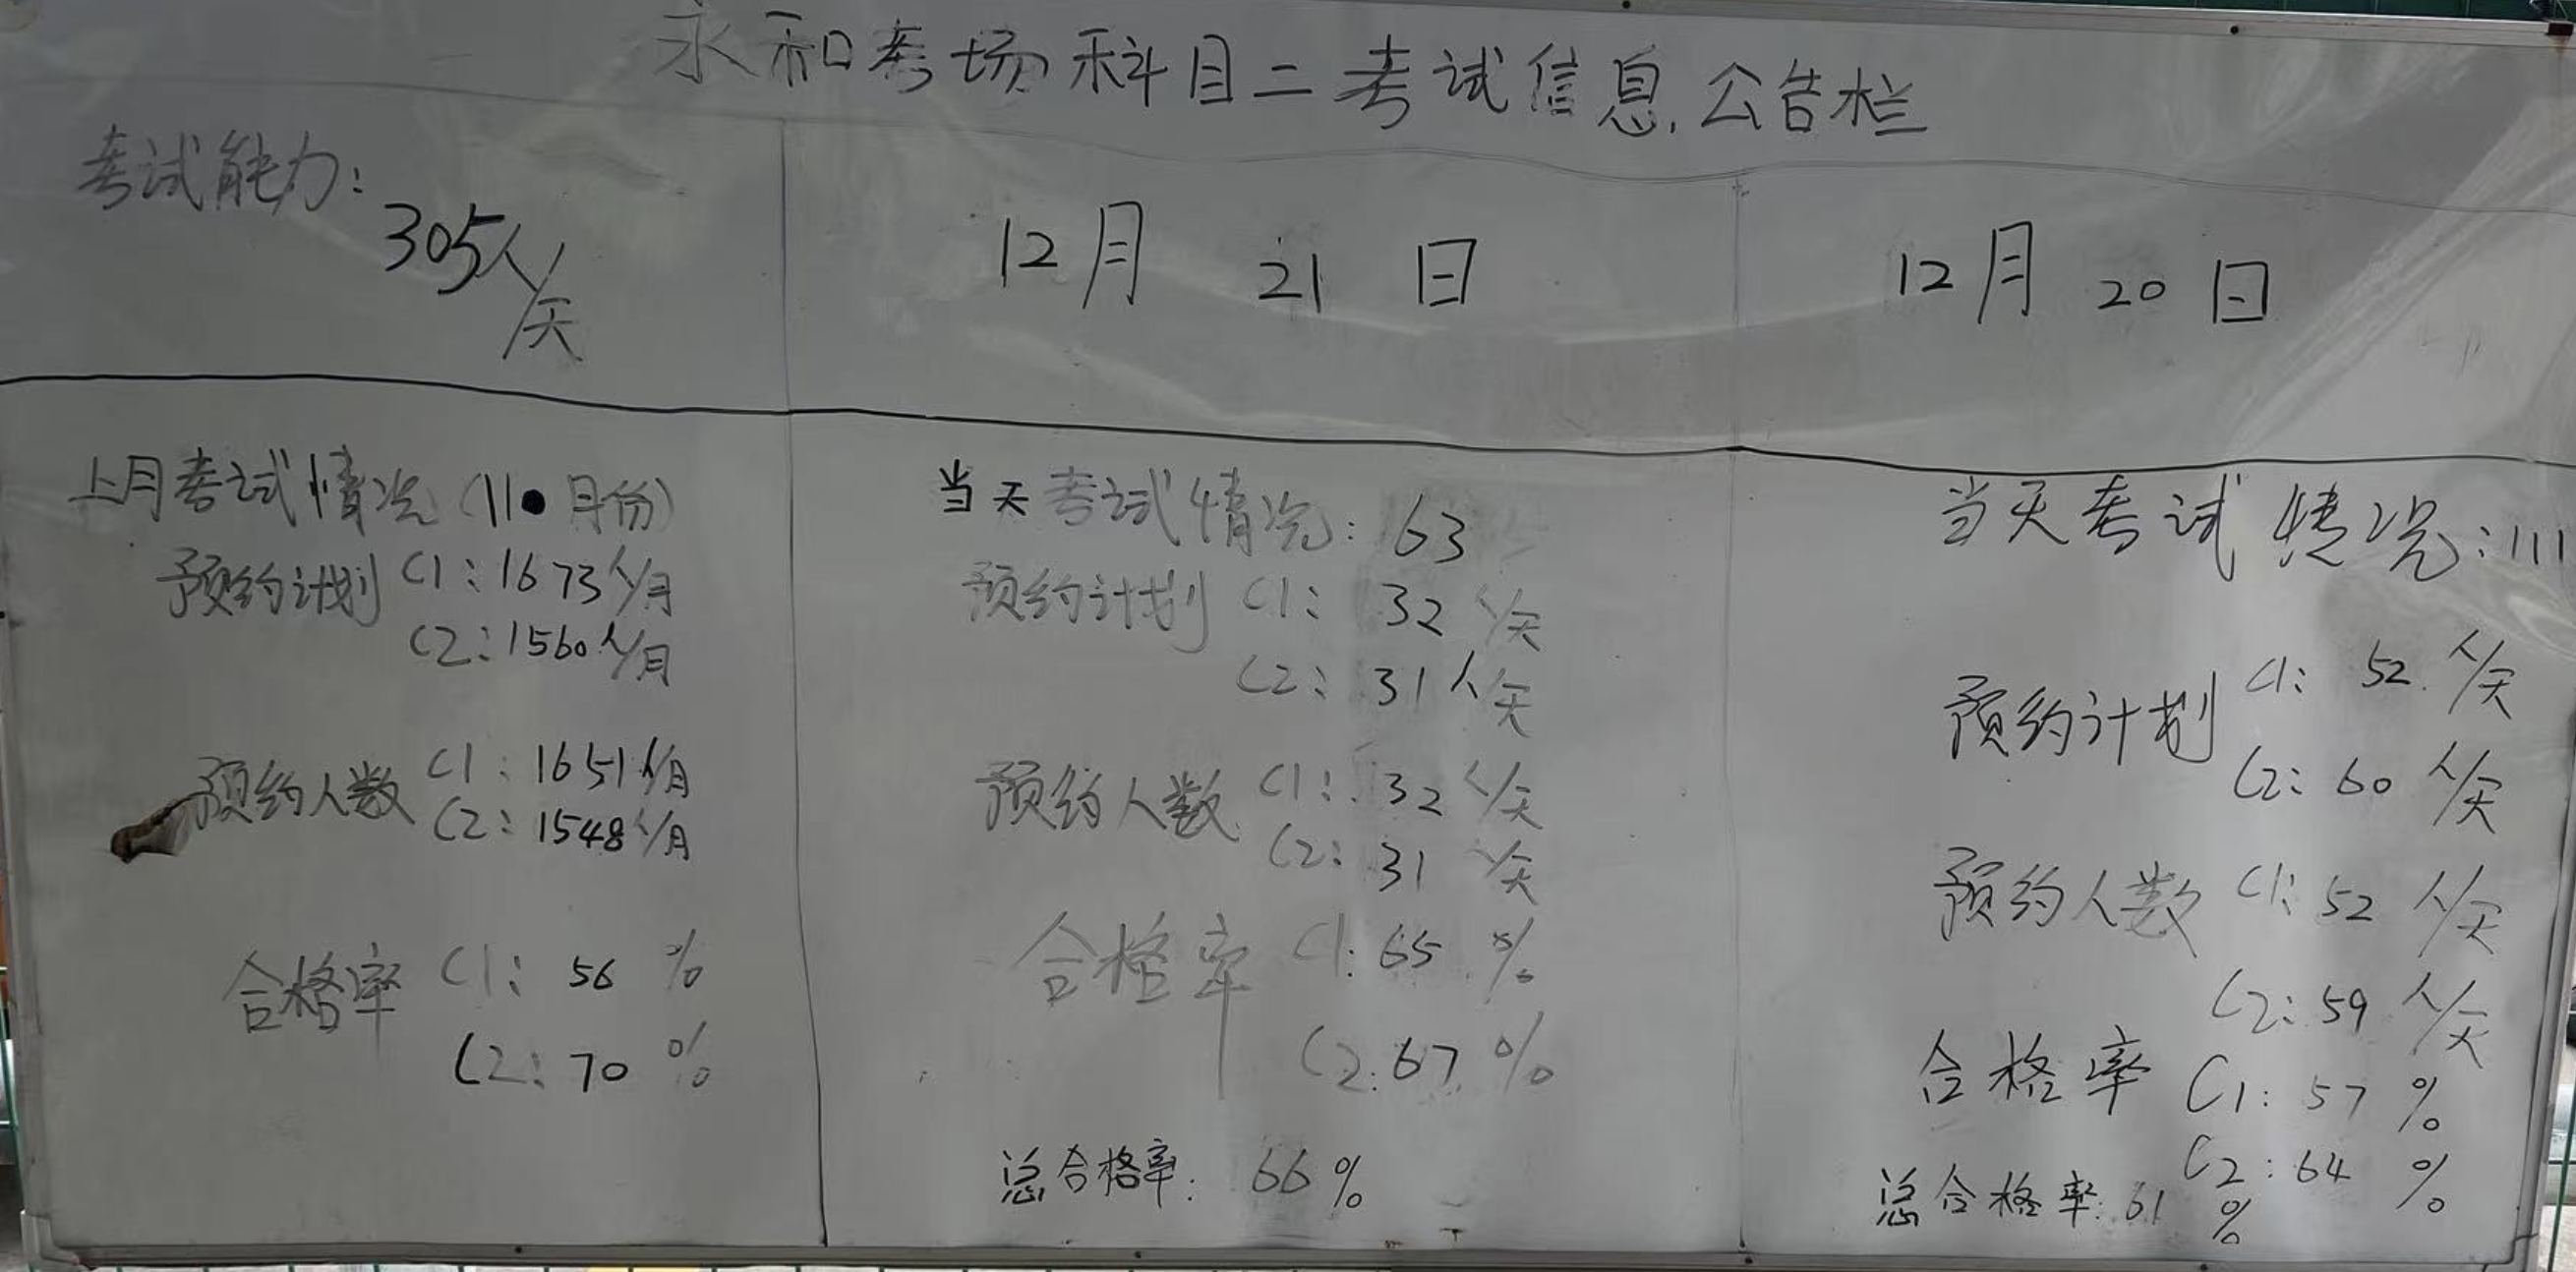 永和考场科目二考试信息公告栏
考试能力:
305人/天
12月 21 日
12月 20 日
上月考试情况(11月份)
预约计划 C1:1673人/月
C2:1560人/月
预约人数 C1:1651人/月
C2:1548人/月
合格率 C1: 56 %
C2: 70 %
当天考试情况: 63
预约计划 C1: 32 人/天
C2: 31人/天
预约人数 C1: 32 人/天
C2: 31 人/天
合格率 C1: 65 %
C2: 67 %
总合格率: 66%
当天考试情况:111
预约计划 C1: 52 人/天
C2: 60 人/天
预约人数 C1: 52 人/天
C2: 59 人/天
合格率 C1: 57 %
C2: 64 %
总合格率: 61 %